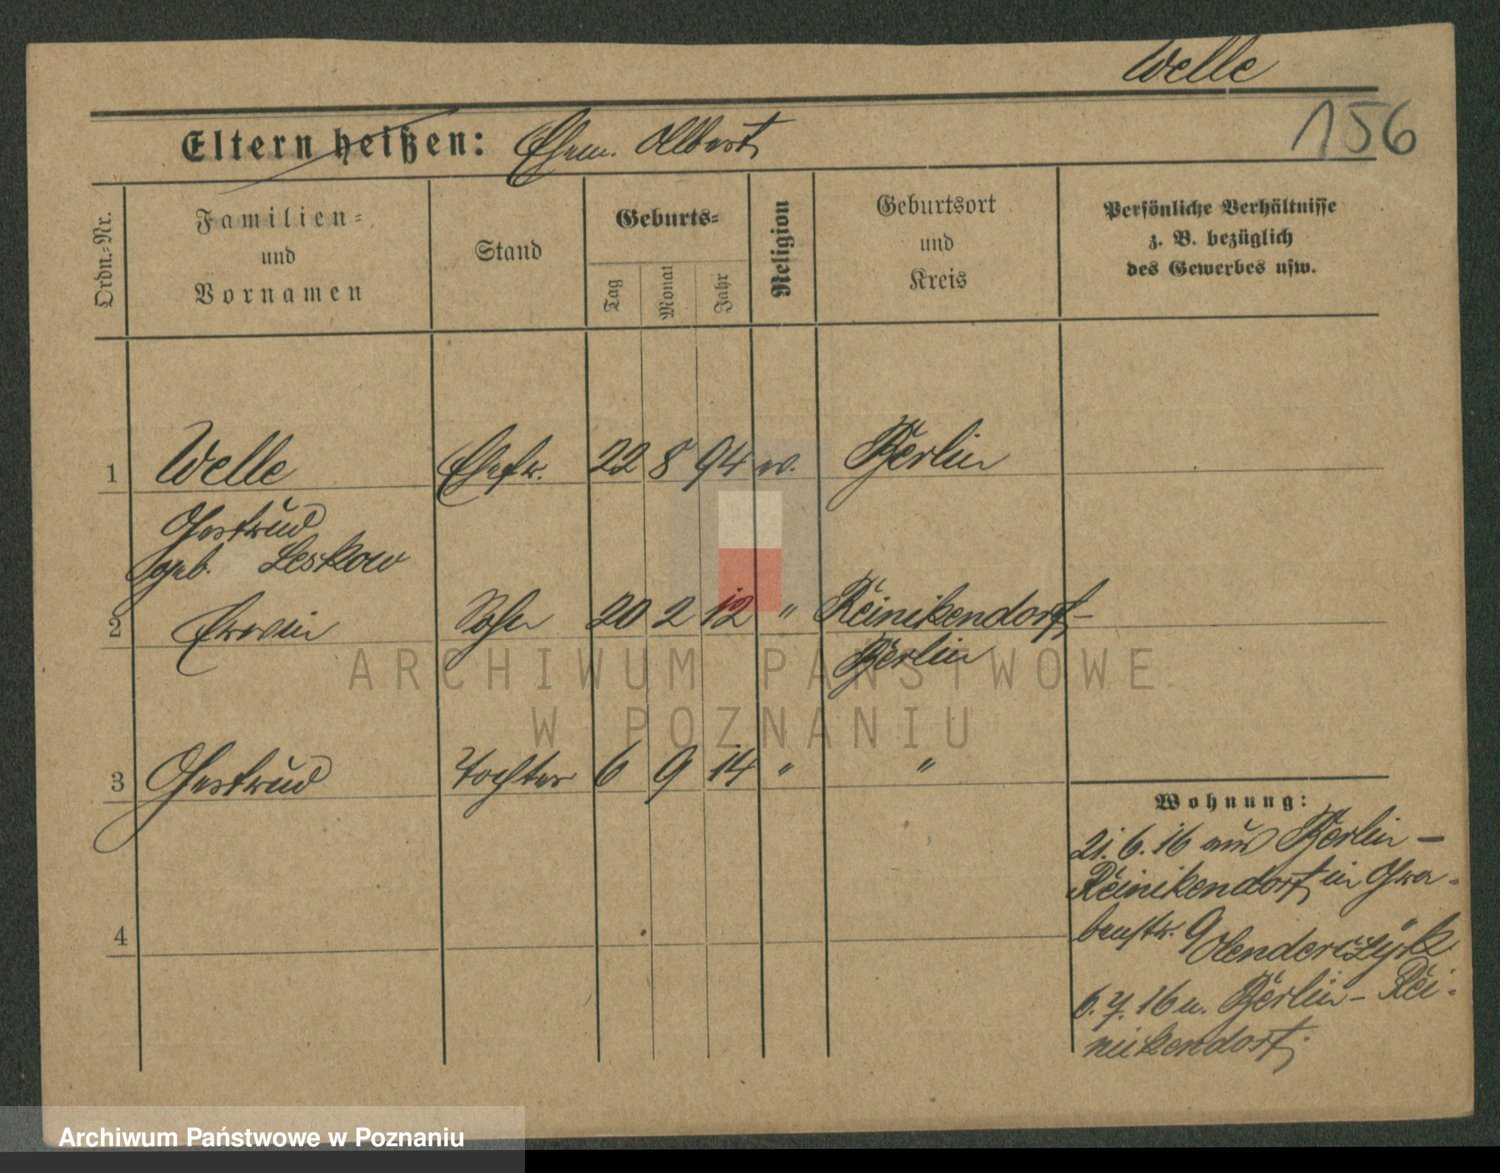 Welle
156
Eltern heißen: Ehem. Albert
Ordn.-Nr.
Familien-
und
Vornamen
Stand
Geburts-
Tag
Monat
Jahr
Religion
Geburtsort
und
Kreis
Persönliche Verhältnisse
z. B. bezüglich
des Gewerbes usw.
1 Welle Ehefr. 22 8 94 ev. Berlin
Gertrud
geb. Leskow
2 Erwin Sohn 20 2 12 " Reinikendorf-
Berlin
3 Gertrud Tochter 6 9 14 " "
4
Wohnung:
21. 6. 16 aus Berlin -
Reinikendorf in Gra-
benstr. 9
6. 7. 16 n. Berlin - Rei-
nikendorf.
ARCHIWUM PAŃSTWOWE
W POZNANIU
Archiwum Państwowe w Poznaniu